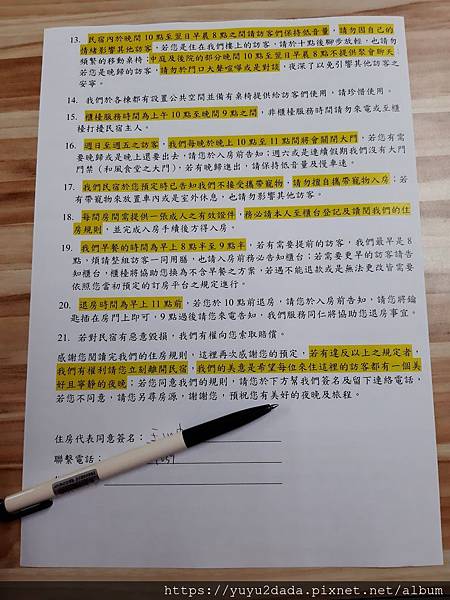 13. 民宿內於晚間 10 點至翌日早晨 8 點之間請訪客們保持低音量，請勿因自己的
情緒影響其他訪客，若您是住在我們樓上的訪客，請於十點後腳步放輕，也請勿
頻繁的移動桌椅；中庭及後院的部分晚間 10 點至翌日早晨 8 點不提供聚會聊天，
若您是晚歸的訪客，請勿於門口大聲喧嘩或是對談，夜深了以免引響其他訪客之
安寧。
14. 我們於各樓都有設置公共空間並備有桌椅提供給訪客們使用，請珍惜使用。
15. 櫃檯服務時間為上午 10 點至晚間 9 點之間，非櫃檯服務時間請勿來電或至櫃
檯打擾民宿主人。
16. 週日至週五之訪客，我們每晚於晚上 10 點至 11 點間將會關閉大門，若您有需
要晚歸或是晚上還要出去，請您於入房前告知；週六或是連續假期我們沒有大門
門禁（和風會堂之大門），若有晚歸進出，請保持低音量及慢車速。
17. 我們民宿於您預定時已告知我們不接受攜帶寵物，請勿擅自攜帶寵物入房；若
有帶寵物來放置車內或是室外休息，也請勿影響其他訪客。
18. 每間房間需提供一張成人之有效證件，務必請本人至櫃台登記及請閱我們的住
房規則，並完成入房手續後方得入房。
19. 我們早餐的時間為早上 8 點半至 9 點半，若有需要提前的訪客，我們最早是 8
點，煩請整組訪客一同用膳，也請入房前務必告知櫃台；若需要更早的訪客請告
知櫃台，櫃檯將協助您換為不含早餐之方案，若遇不能退款或是無法更改皆需要
依照您當初預定的訂房平台之規定進行。
20. 退房時間為早上 11 點前，若您於 10 點前退房，請您於入房前告知，請您將鑰
匙插在房門上即可，9 點過後請您來電告知，我們服務同仁將協助您退房事宜。
21. 若對民宿有惡意毀損，我們有權向您索取賠償。
感謝您閱讀完我們的住房規則，這裡再次感謝您的預定，若有違反以上之規定者，
我們有權利請您立刻離開民宿，我們的美意是希望每位來住這裡的訪客都有一個美
好且寧靜的夜晚；若您同意我們的規則，請您於下方幫我們簽名及留下連絡電話，
若您不同意，請您另尋房源，謝謝您，預祝您有美好的夜晚及旅程。
住房代表同意簽名：
聯繫電話：
https://yuyu2dada.pixnet.net/album